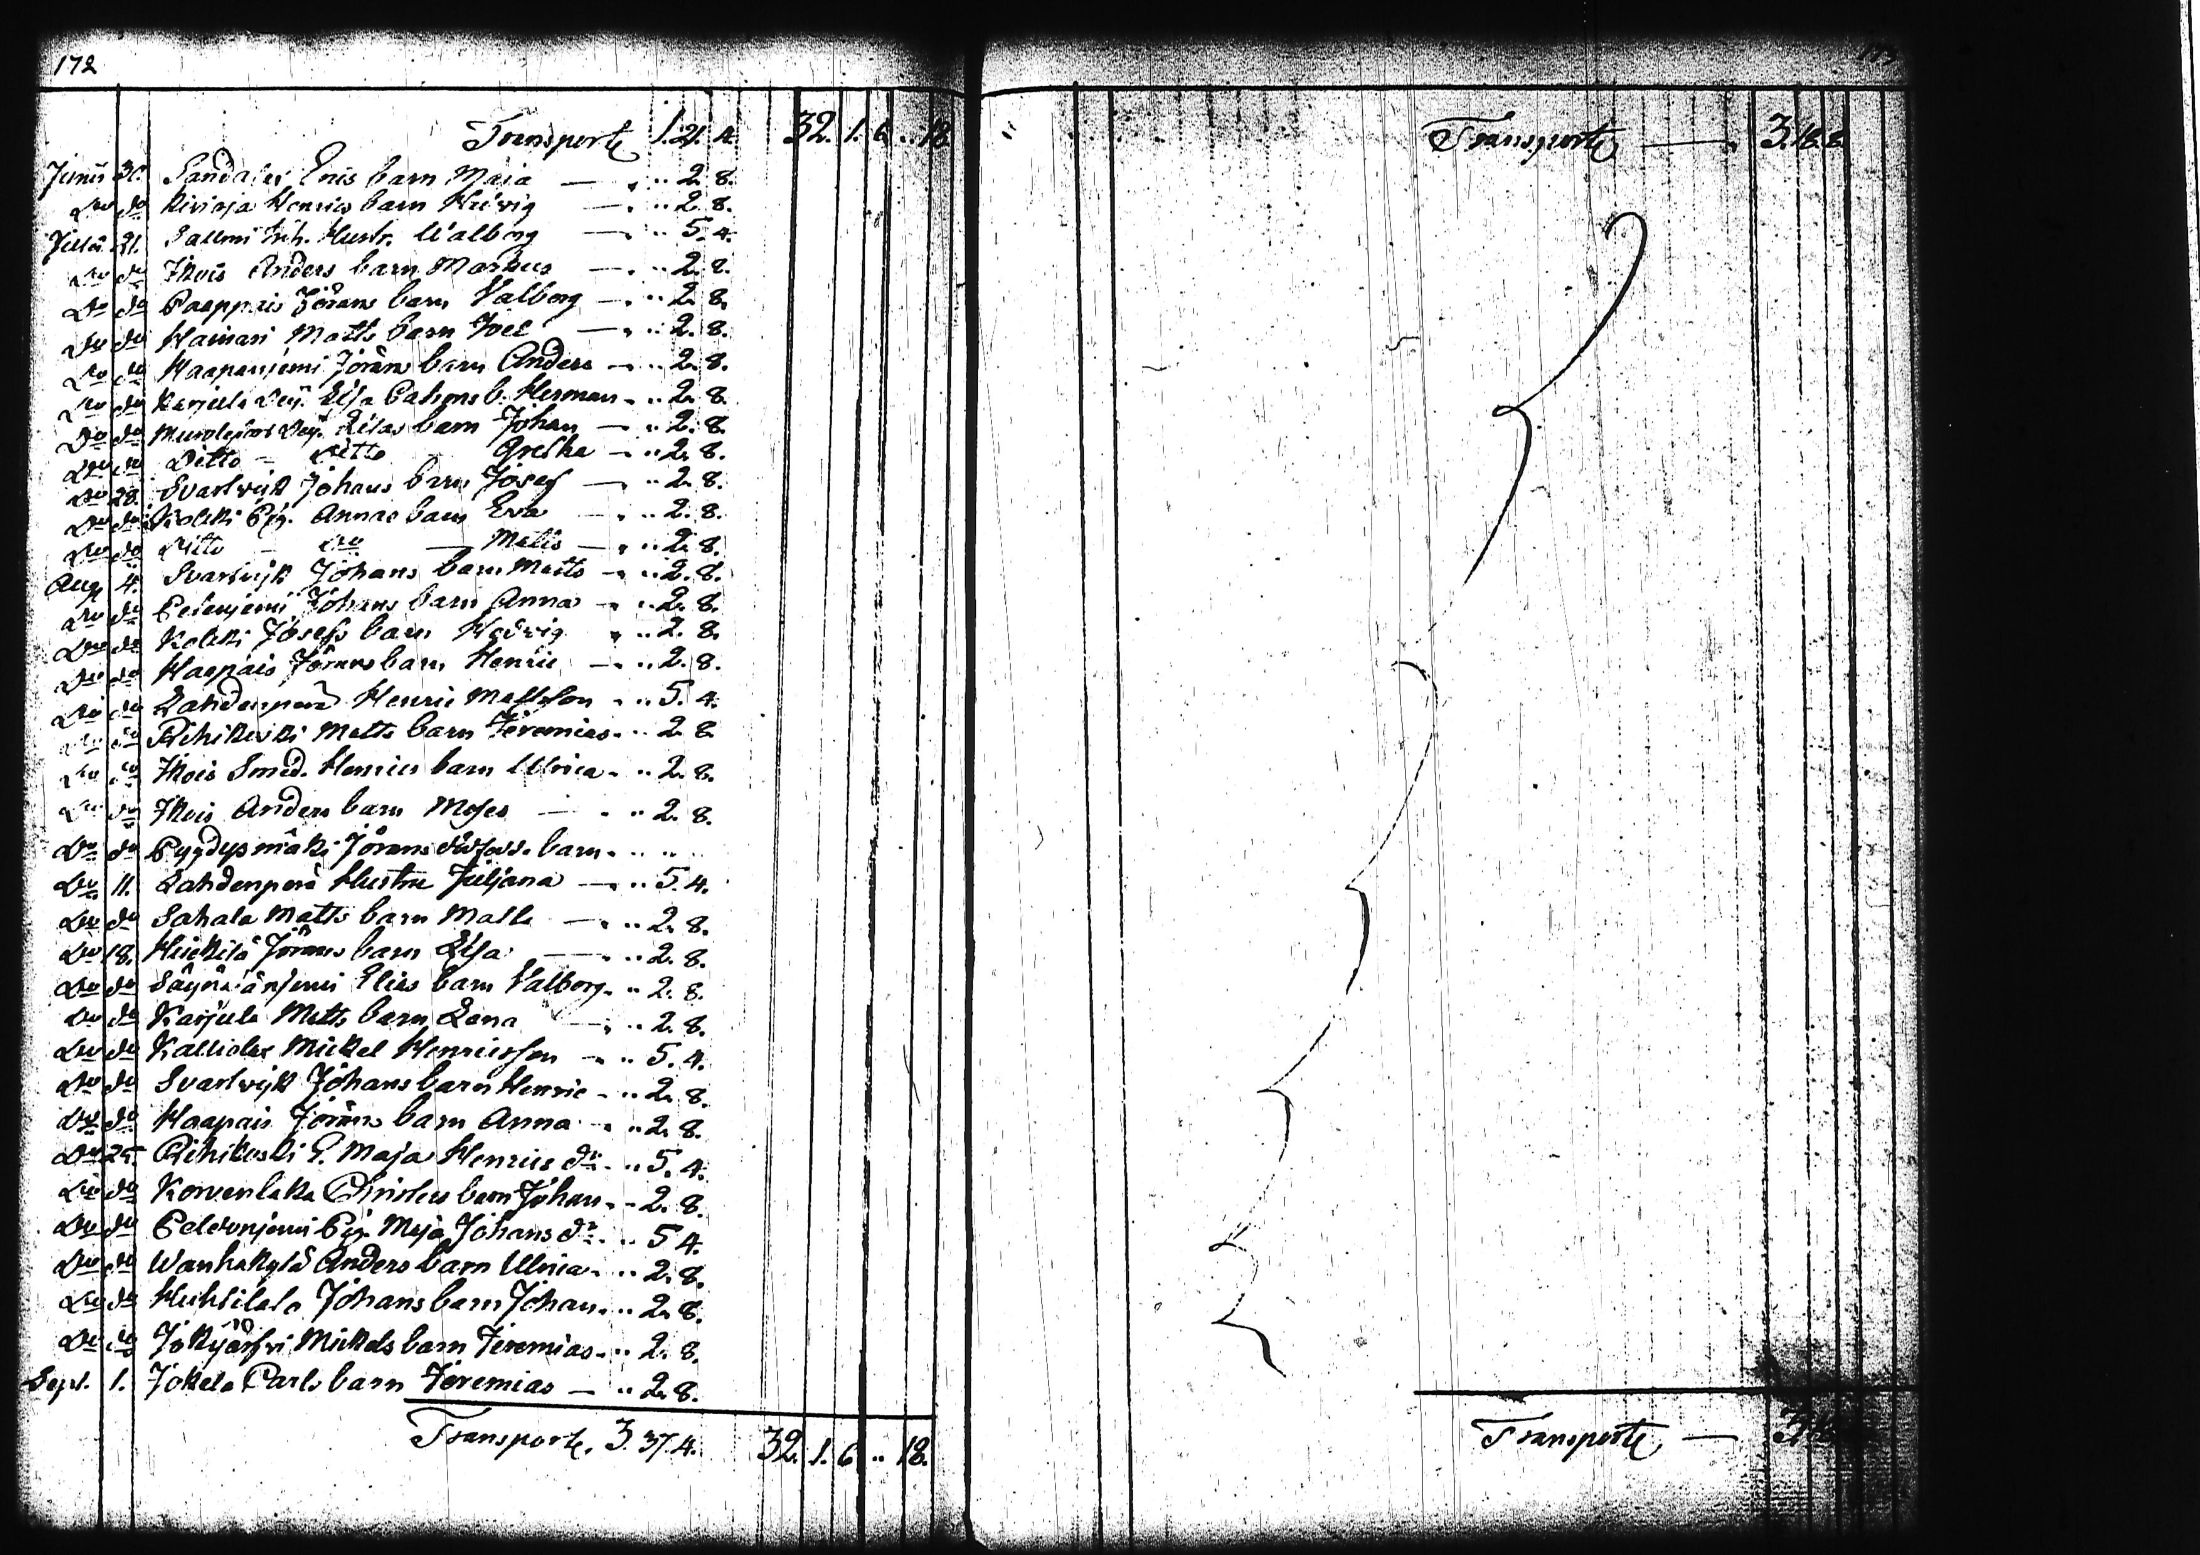 172
Transporte 1. 21. 4. 32. 1. 6. „ 18.
Junii 30. Enis barn Maia — „ 2. 8.
Do do Henrics barn Hedvig — „ 2. 8.
Julii 21. Sallmi Inh. Hustr. Walborg — „ 5. 4.
Do do Ikois Anders barn Markus — „ 2. 8.
Do do Paappais Jörans barn Valborg — „ 2. 8.
Do do Hainari Matts barn Joel — „ 2. 8.
Do do Haapaniemi Jörans barn Anders — „ 2. 8.
Do do Karjula Elsa b. Herman — „ 2. 8.
Do do barn Johan — „ 2. 8.
Do do Ditto — Ditto Gretha — „ 2. 8.
Do 28. Svartvijk Johans barn Josef — „ 2. 8.
Do do Kolkki Pig. Annas barn Eva — „ 2. 8.
Do do Ditto — Do — Matts — „ 2. 8.
Aug. 4. Svartvijk Johans barn Matts — „ 2. 8.
Do do Johans barn Anna — „ 2. 8.
Do do Kolkki Josefs barn Hedvig „ 2. 8.
Do do Haapais Jörans barn Henric — „ 2. 8.
Do do Lahdenperä Henric Mattsson „ 5. 4.
Do do Riihikoski Matts barn Jeremias „ 2. 8.
Do do Ikois Smed. Henrics barn Ulrica „ 2. 8.
Do do Ikois Anders barn Moses — „ 2. 8.
Do do Pyydysmäki Jörans barn „ „
Do 11. Lahdenperä Hustru Juljana — „ 5. 4.
Do do Sahala Matts barn Matts — „ 2. 8.
Do 18. Heickilä Jörans barn Elsa — „ 2. 8.
Do do Säynäjänjemi Elies barn Valborg „ 2. 8.
Do do Karjula Matts barn Lena — „ 2. 8.
Do do Mickel Henricsson — „ 5. 4.
Do do Svartvijk Johans barn Henric — „ 2. 8.
Do do Haapais Jörans barn Anna „ 2. 8.
Do 25. Riihikoski P. Maja Henrics dr. „ 5. 4.
Do do Korvenlaka Christers barn Johan „ 2. 8.
Do do Peldonjemi Pig. Maja Johans dr. „ 5. 4.
Do do Wanhakylä Anders barn Ulrica „ 2. 8.
Do do Huhtilala Johans barn Johan „ 2. 8.
Do do Jokijärfvi Mickels barn Jeremias „ 2. 8.
Sept. 1. Jokela Carls barn Jeremias — „ 2. 8.
Transporte. 3. 37. 4. 32. 1. 6 „ 18.
Transporte — 3. 18. 8.
Transporte —